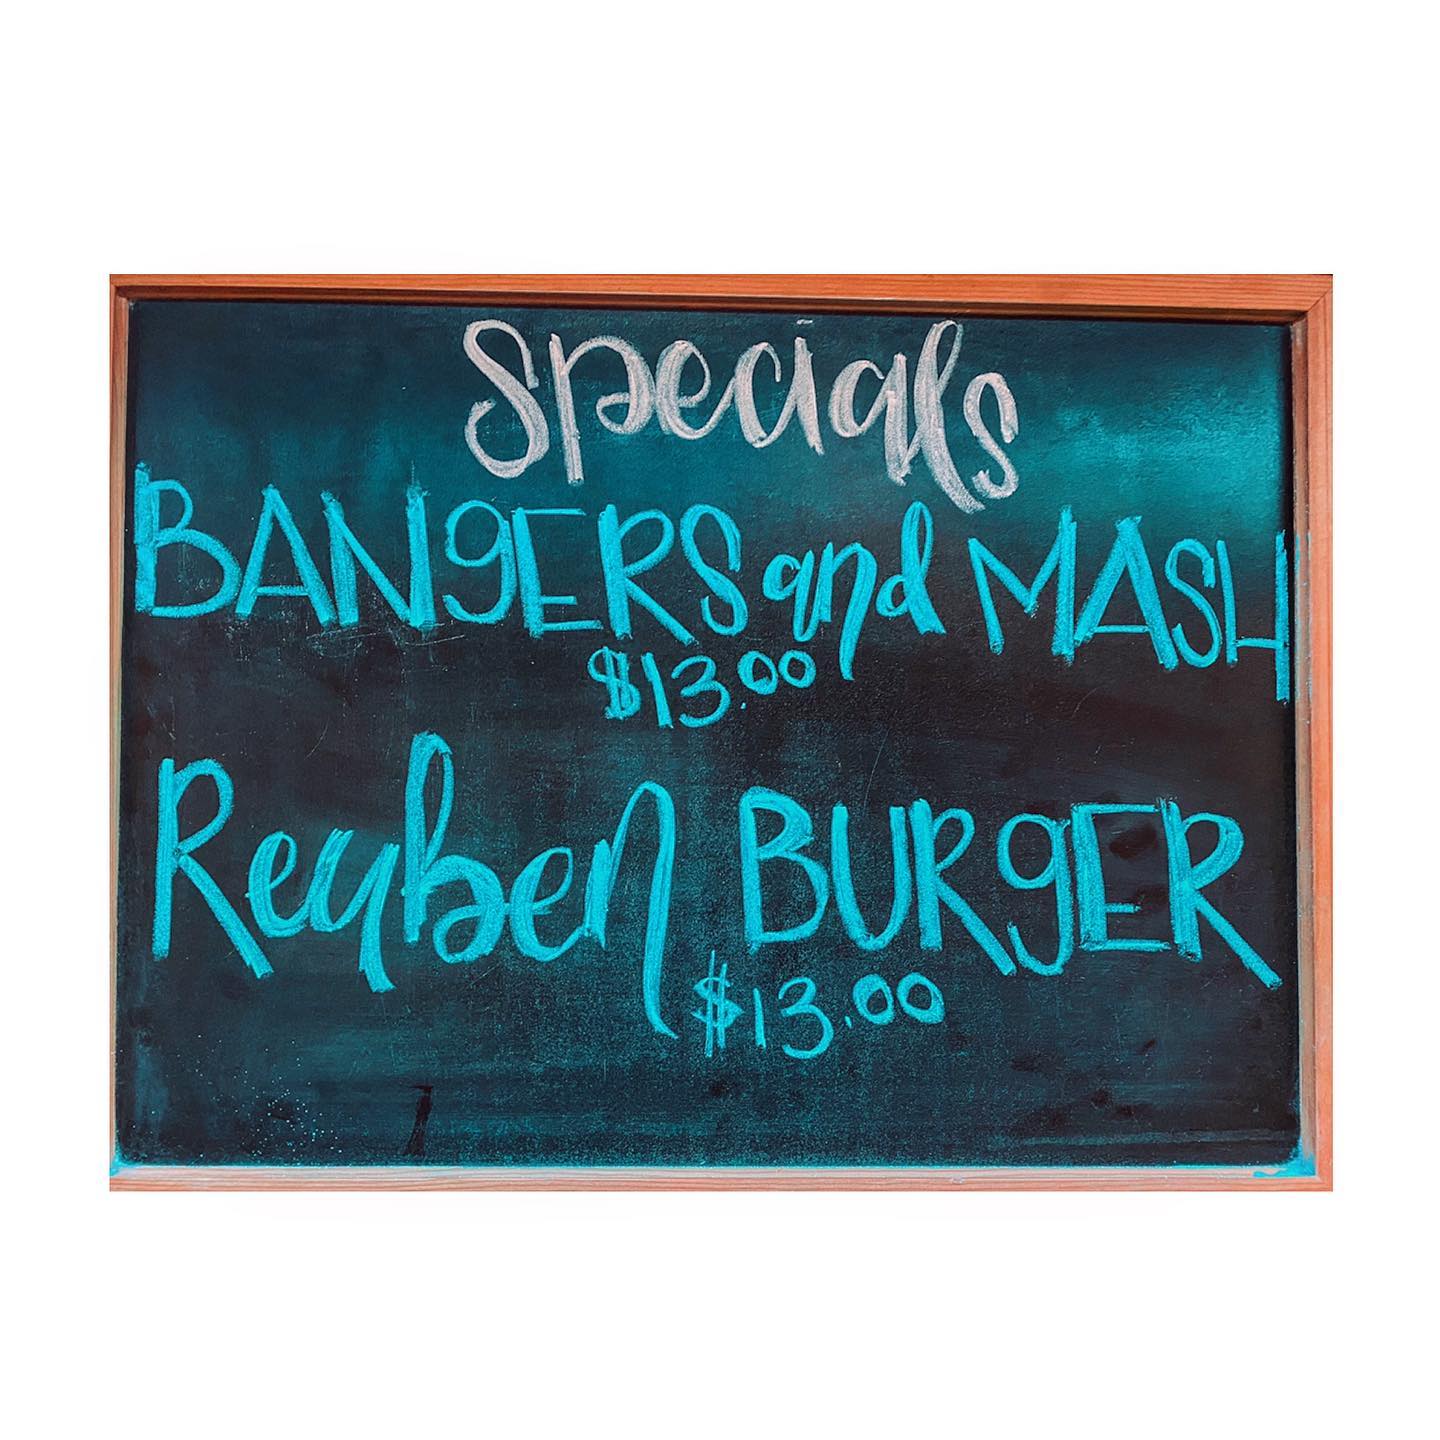 Specials
BANgERS and MASH
$13.00
Reuben BURgER
$13.00